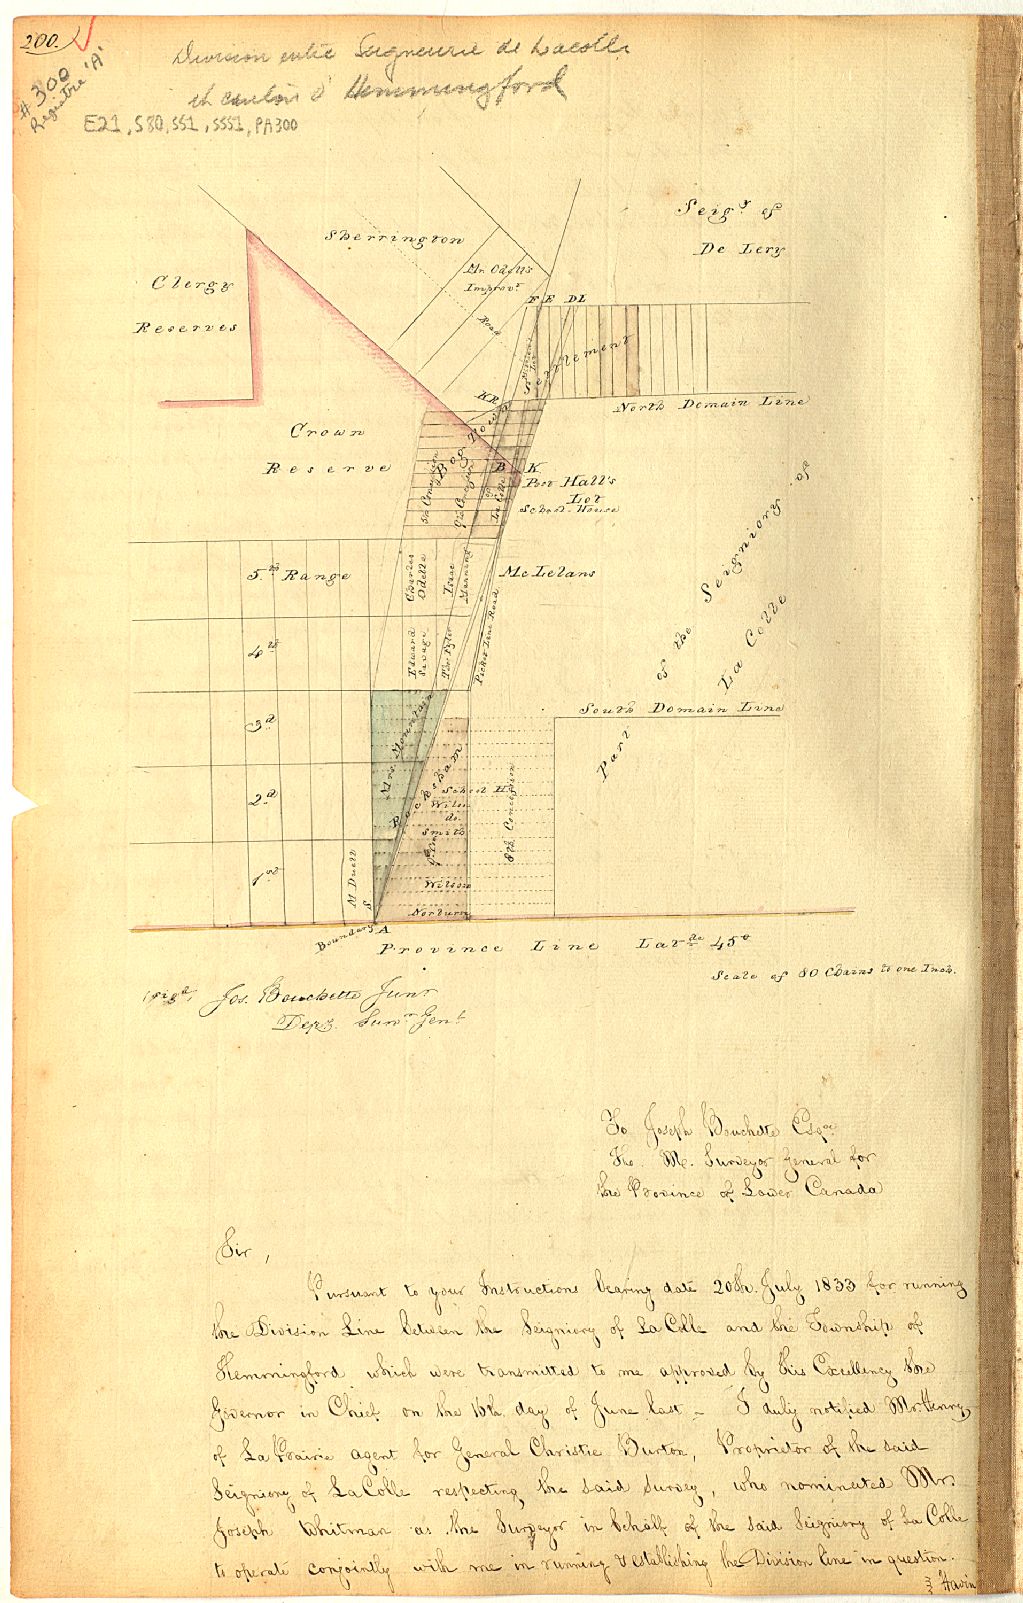 200.
# 300
Registre 'A'
Division entre Seigneurie de Lacolle
et canton d'Hemmingford
E21, S80, SS1, SSS1, PA300
Seigy of
De Lery
Sherrington
Mr. Odells
Improvt
Road
Clergy
Reserves
F E D L
Settlement
North Domain Line
K R
Crown
Reserve
Bog Now
B K
Pos Hall's
Lot
School House
5th Concession
La Colle
5.th Range
Charles
Odelle
Isaac
Manning
McLelans
4th
Edward
Savage
Picket Line Road
Part of the Seigniory of
La Colle
South Domain Line
3d
Mrs. Mountain
2d
Beckstham
School H.
Wilson
do.
Smith
8th Concession
1st
M Duell
S
Wilson
Norturn
Boundary A
Province Line Latde 45°
Scale of 80 Chains to one Inch.
(Sigd) Jos. Bouchette Junr
Depy. Survr Genl
To Joseph Bouchette Esqre
His M. Surveyor General for
the Province of Lower Canada
Sir,
Pursuant to your Instructions bearing date 20th. July 1833 for running
the Division Line between the Seigniory of La Colle and the Township of
Hemmingford which were transmitted to me approved by his Excellency the
Governor in Chief on the 16th day of June last – I duly notified Mr. Henry
of La Prairie agent for General Christie Burton, Proprietor of the said
Seigniory of La Colle respecting the said survey, who nominated Mr.
Joseph Whitman as the Surveyor in behalf of the said Seigniory of La Colle
to operate conjointly with me in running & establishing the Division line in question.
Havin